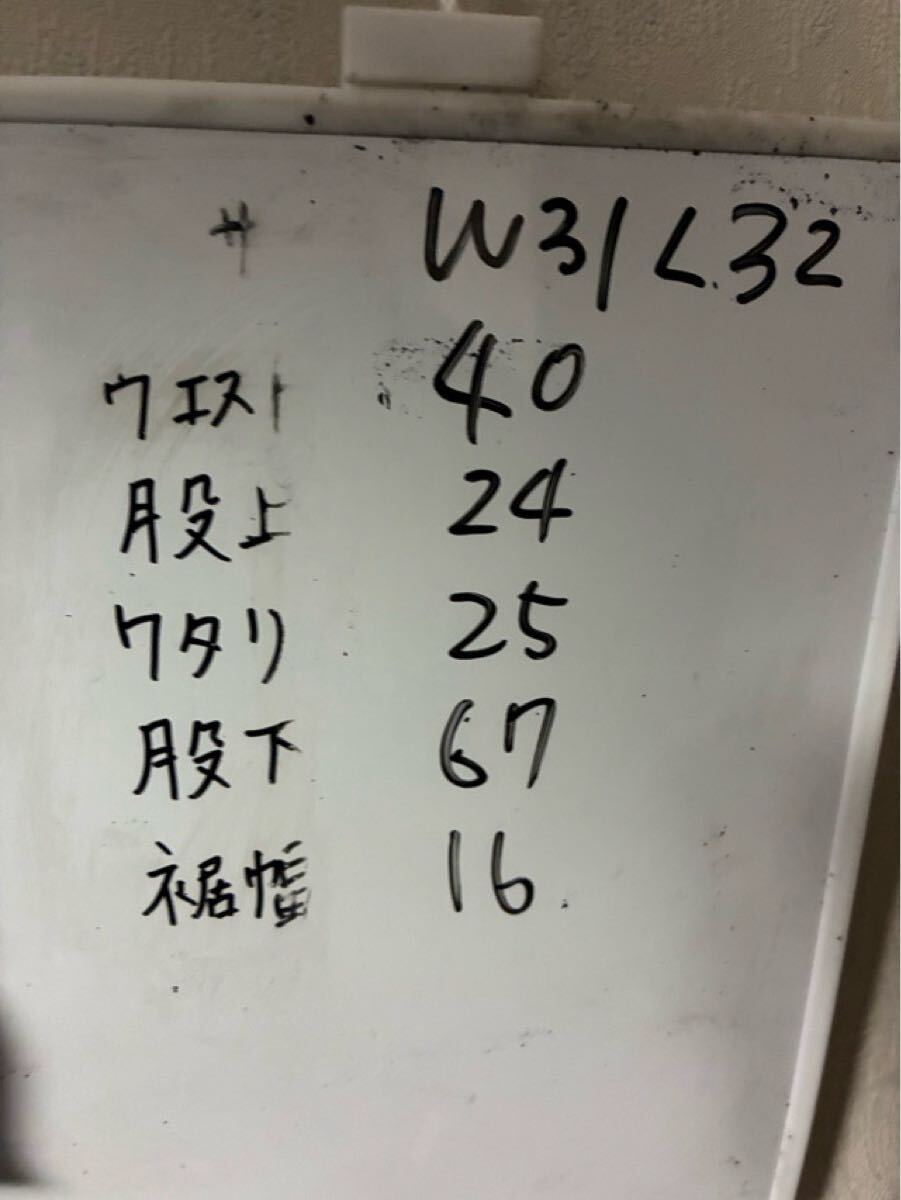 サ W31 L32
ウエスト 40
股上 24
ワタリ 25
股下 67
裾幅 16